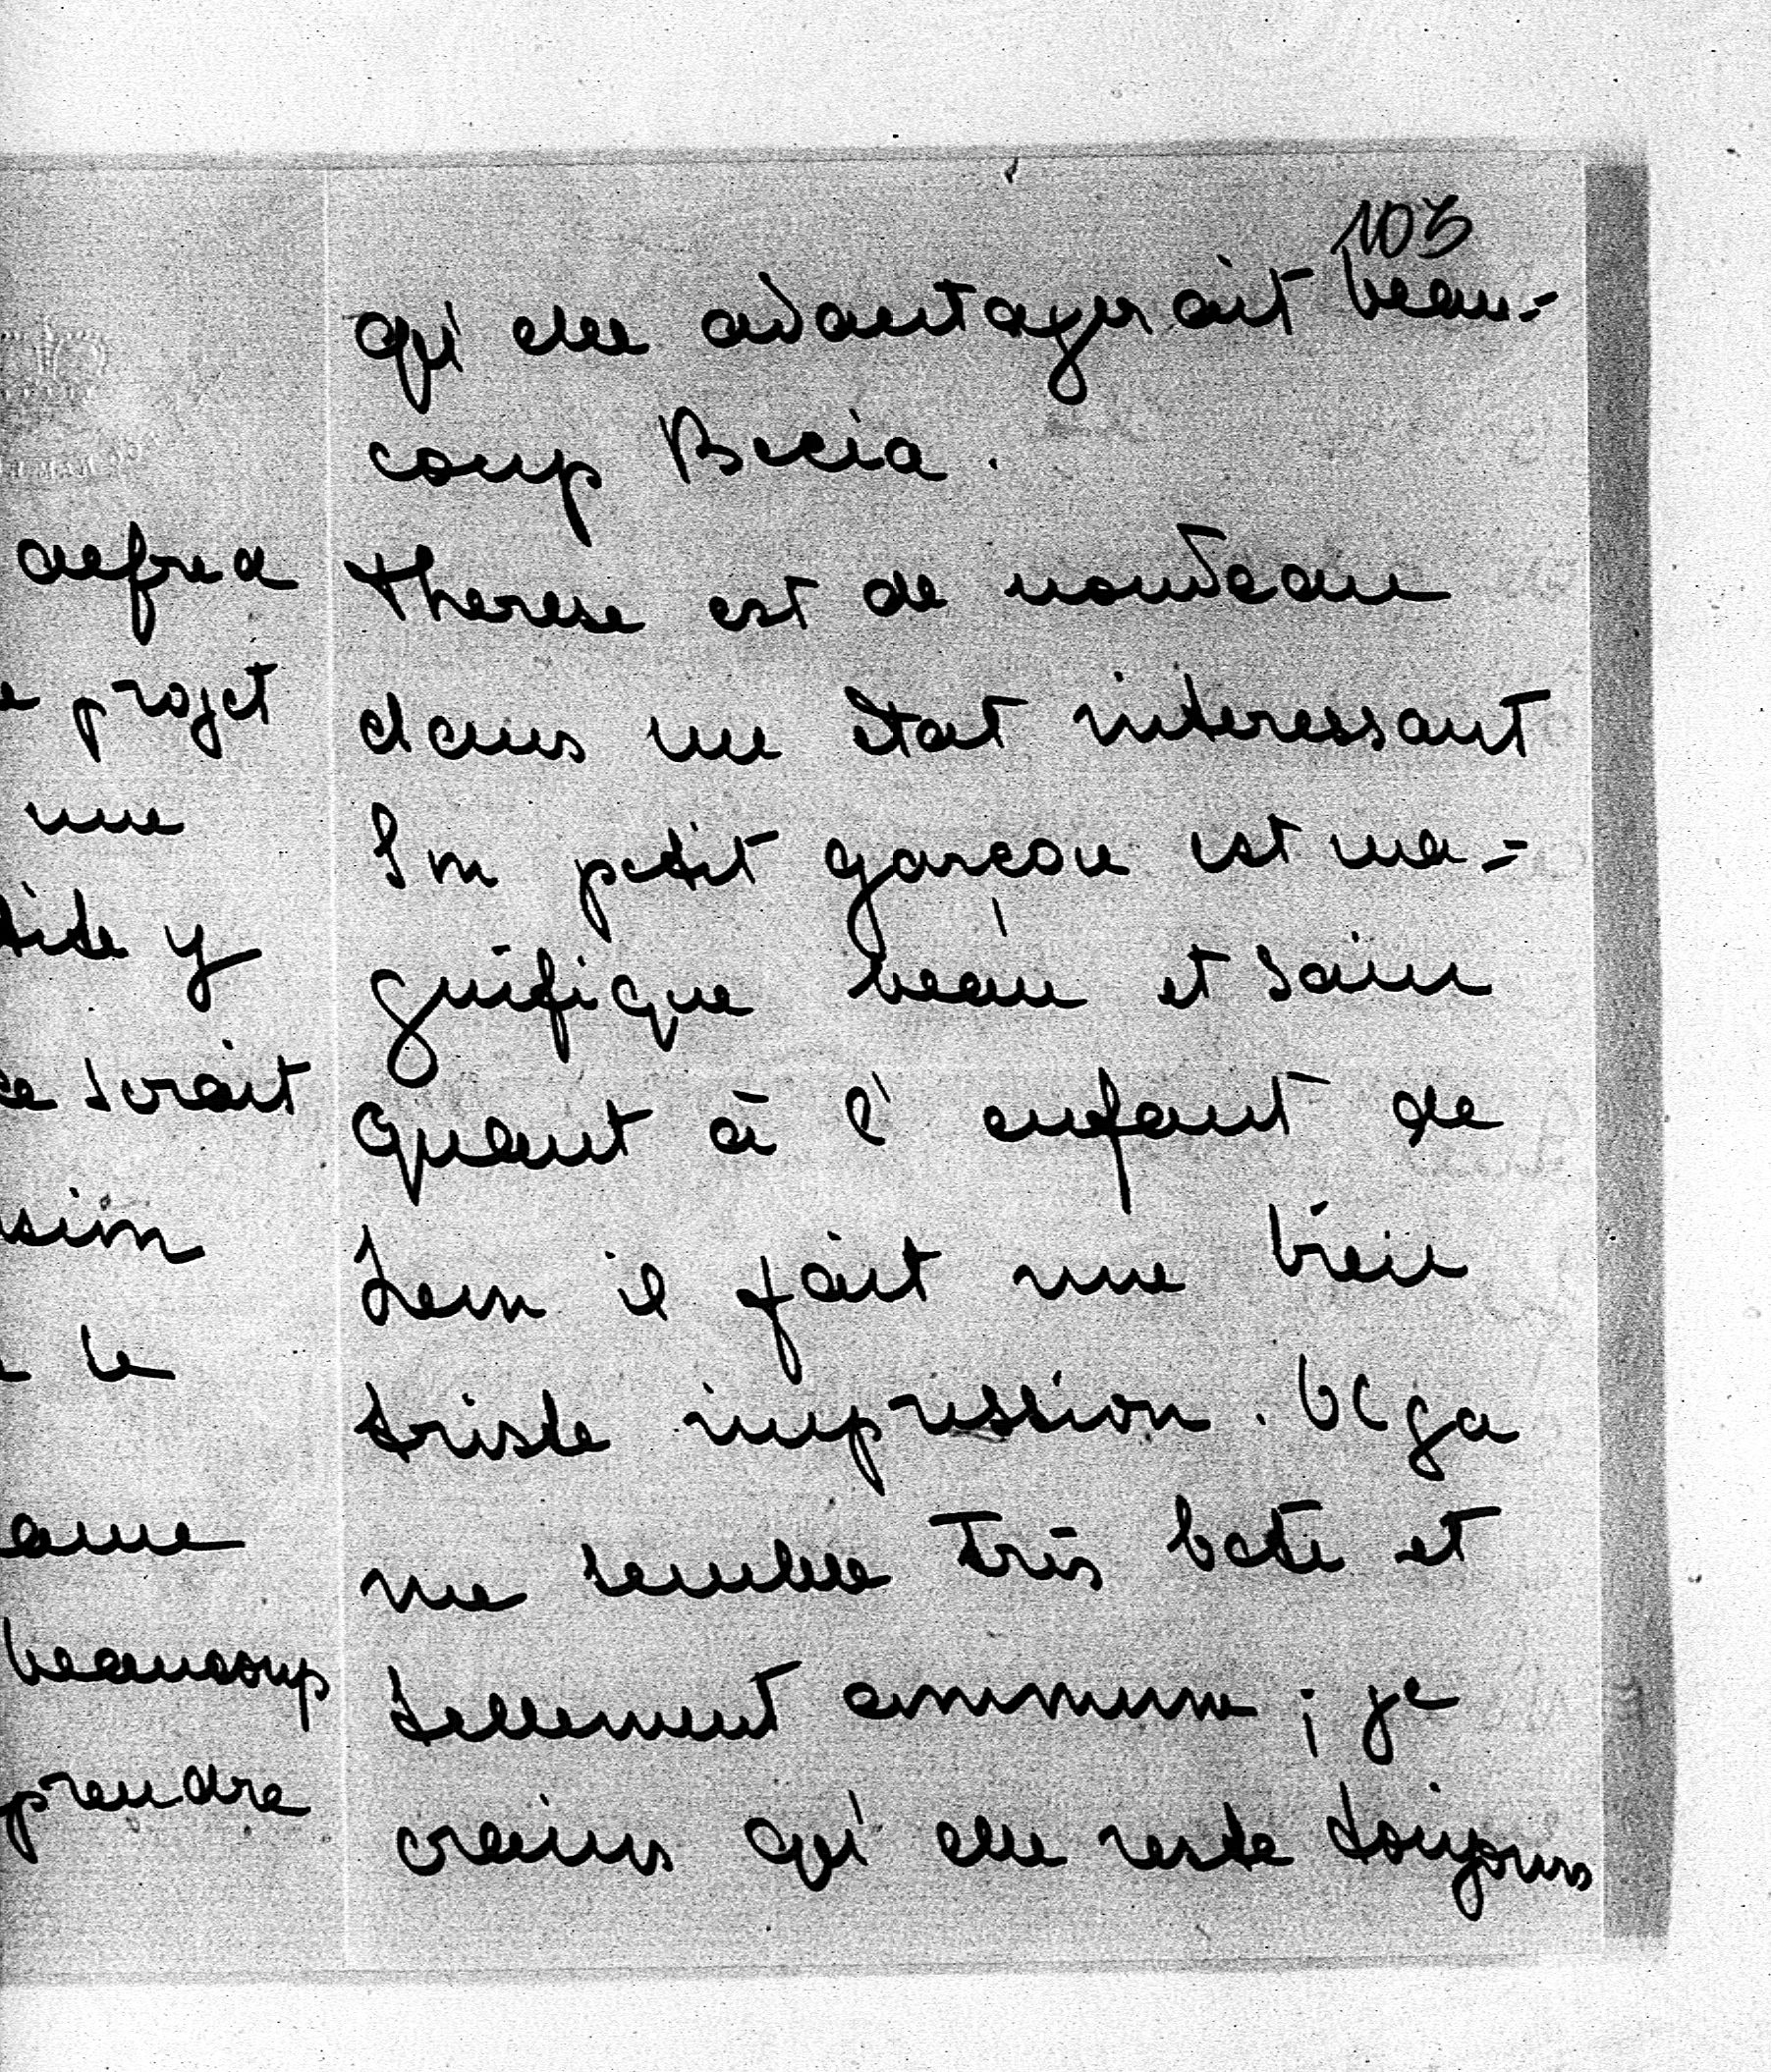 103
qu'elle advantagerait beau=
coup Bicia.
Therese est de nouveau
dans un état interessant
Son petit garcon est ma=
gnifique beau et sain
quant à l'enfant de
Leon il fait une bien
triste impression. Olga
me semble très bete et
tellement commune ; je
crains qu'elle reste toujours
projet
une
y
serait
le
beaucoup
prendre